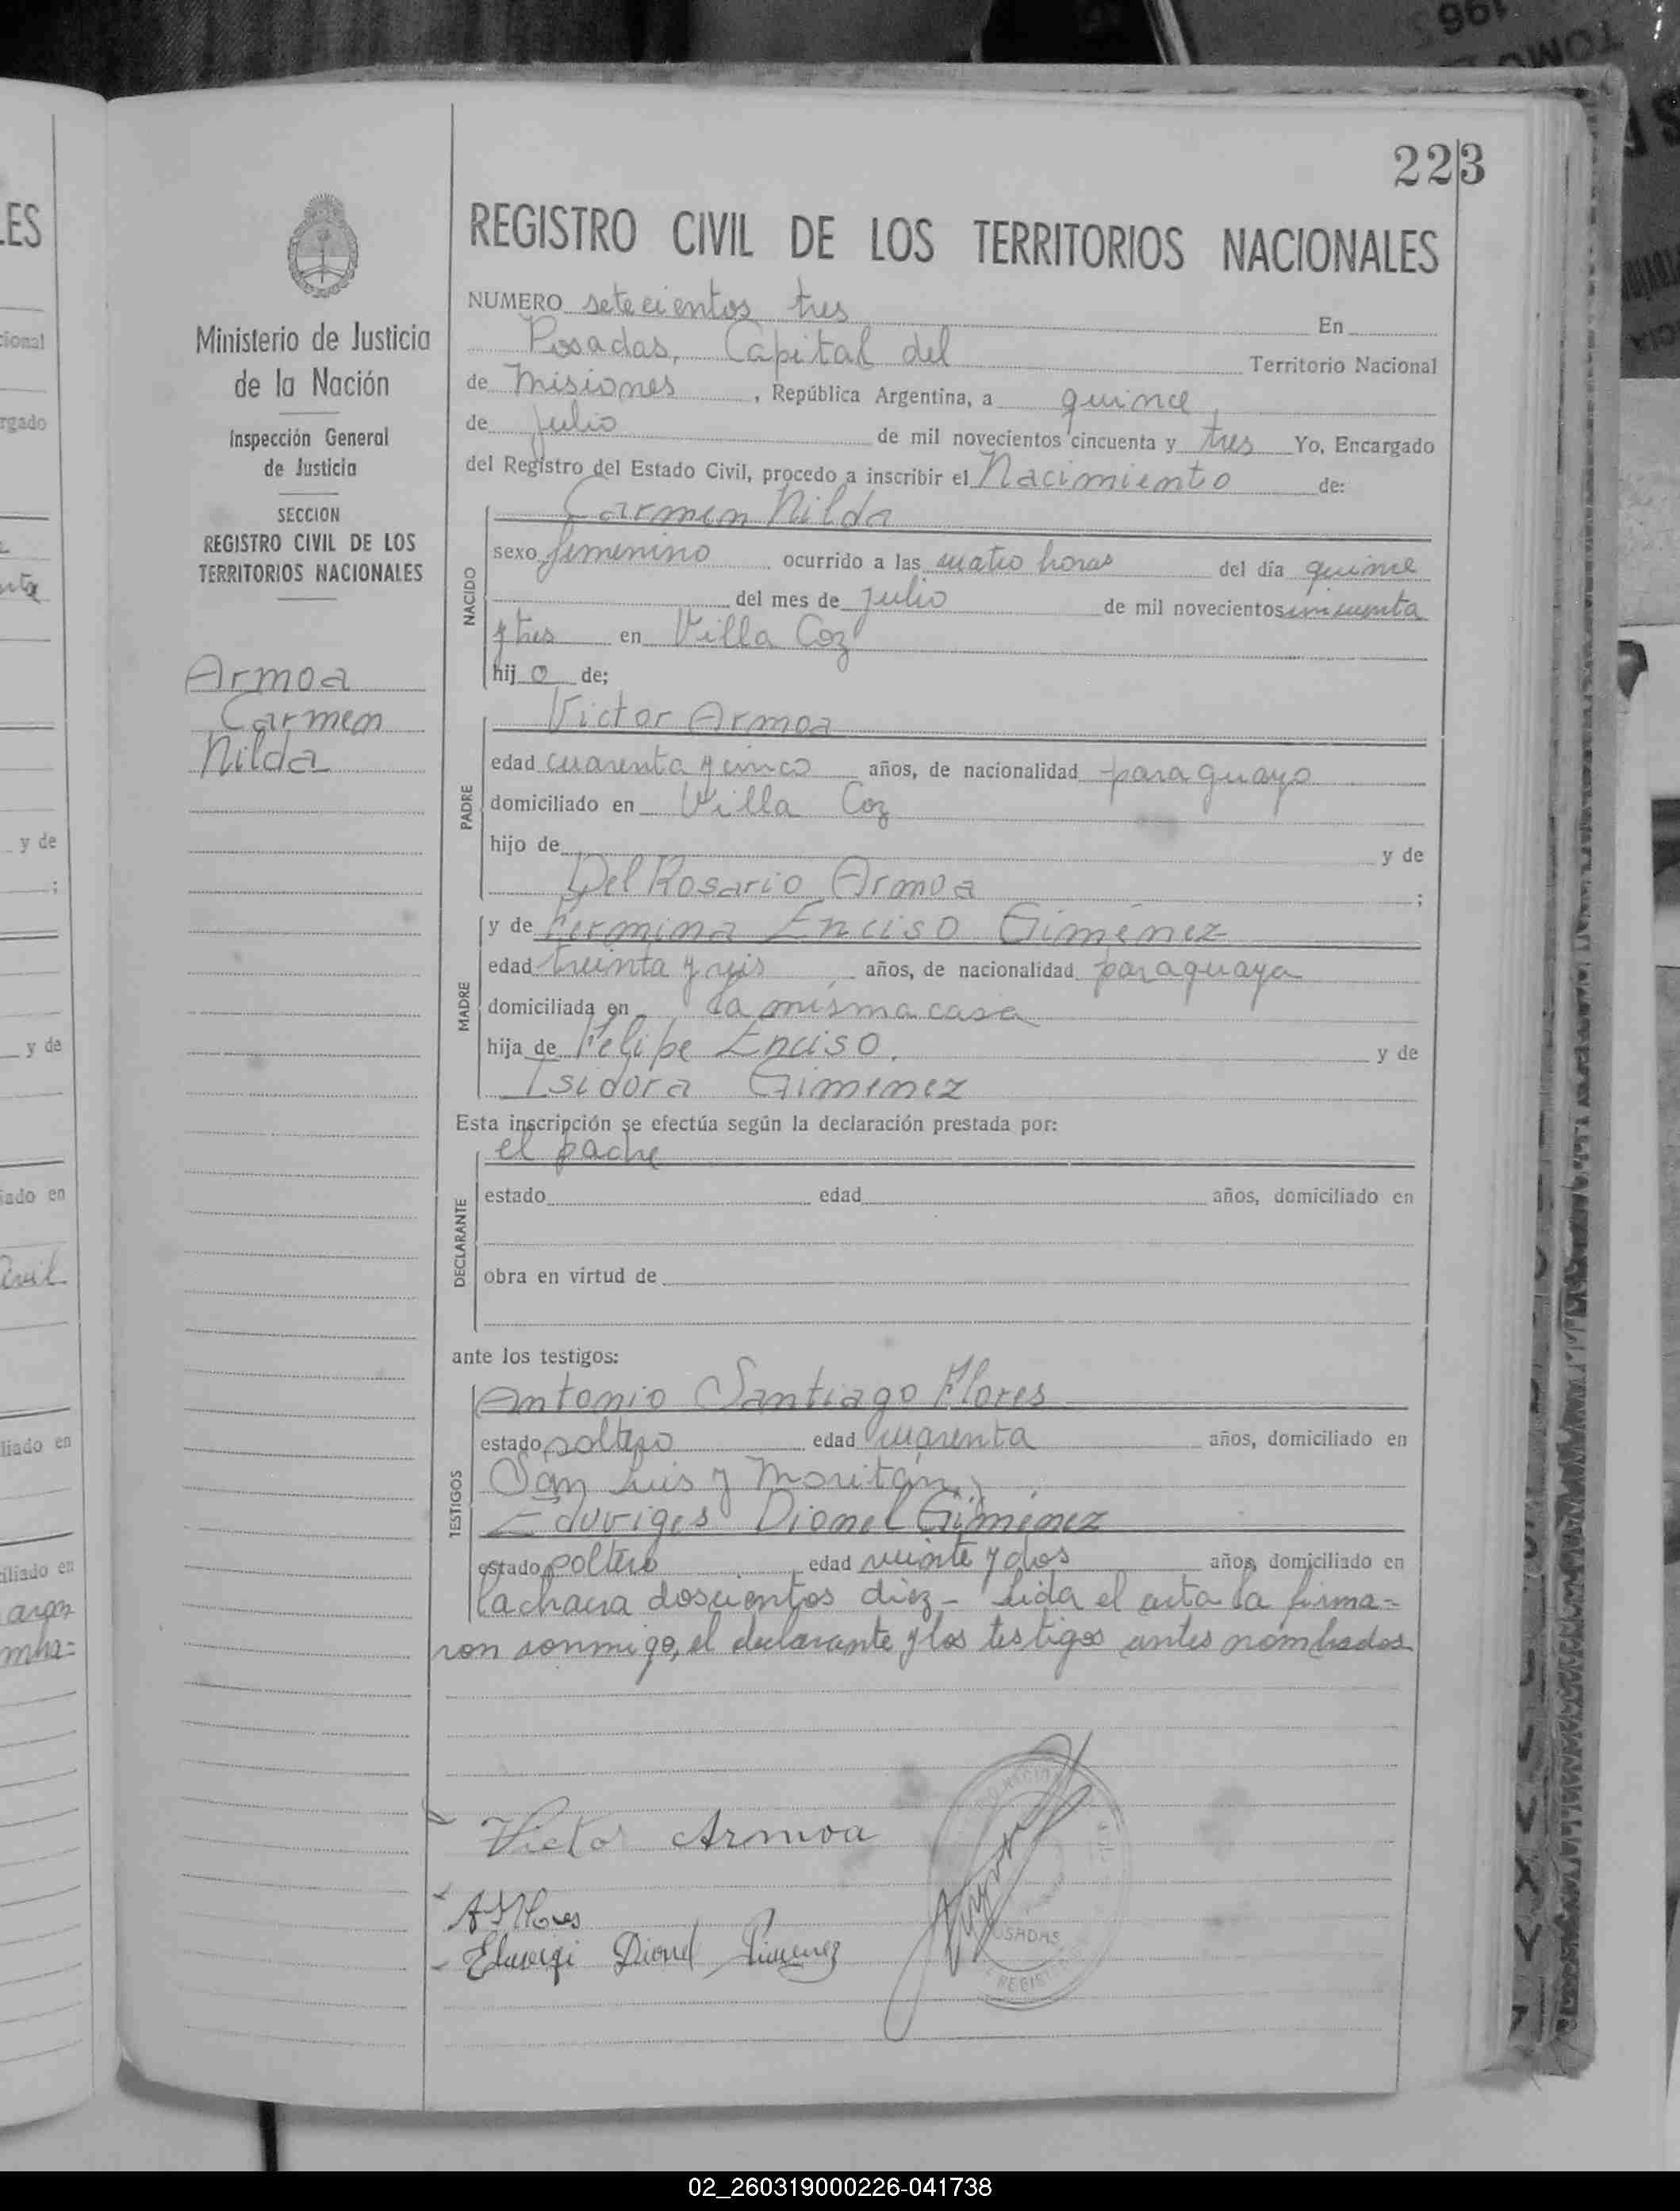 196
TOMO
223
REGISTRO CIVIL DE LOS TERRITORIOS NACIONALES
Ministerio de Justicia
de la Nación
Inspección General
de Justicia
SECCION
REGISTRO CIVIL DE LOS
TERRITORIOS NACIONALES
Armoa
Carmen
Nilda
NUMERO setecientos tres En
Posadas, Capital del Territorio Nacional
de Misiones, República Argentina, a quince,
de Julio de mil novecientos cincuenta y tres Yo, Encargado
del Registro del Estado Civil, procedo a inscribir el Nacimiento de:
Carmen Nilda
NACIDO
sexo femenino ocurrido a las cuatro horas del día quince
del mes de Julio de mil novecientos cincuenta
y tres en Villa Coz
hij o de;
Victor Armoa
PADRE
edad cuarenta y cinco años, de nacionalidad paraguayo
domiciliado en Villa Coz
hijo de y de
Del Rosario Armoa ;
y de Fermina Enciso Giménez
MADRE
edad treinta y seis años, de nacionalidad paraguaya
domiciliada en la misma casa
hija de Felipe Enciso, y de
Isidora Gimenez
Esta inscripción se efectúa según la declaración prestada por:
el padre
DECLARANTE
estado edad años, domiciliado en
obra en virtud de
ante los testigos:
Antonio Santiago Flores
TESTIGOS
estado soltero edad cuarenta años, domiciliado en
San Luis y Moritán,
Eduviges Dionel Giménez
estado soltero edad veinte y dos años, domiciliado en
la chacra doscientos diez - Lida el acta la firma=
ron conmigo, el declarante y los testigos antes nombrados
Victor Armoa
A S Flores
Eduvigi Dionel Gimenez
POSADAS
REGIST
02_260319000226-041738